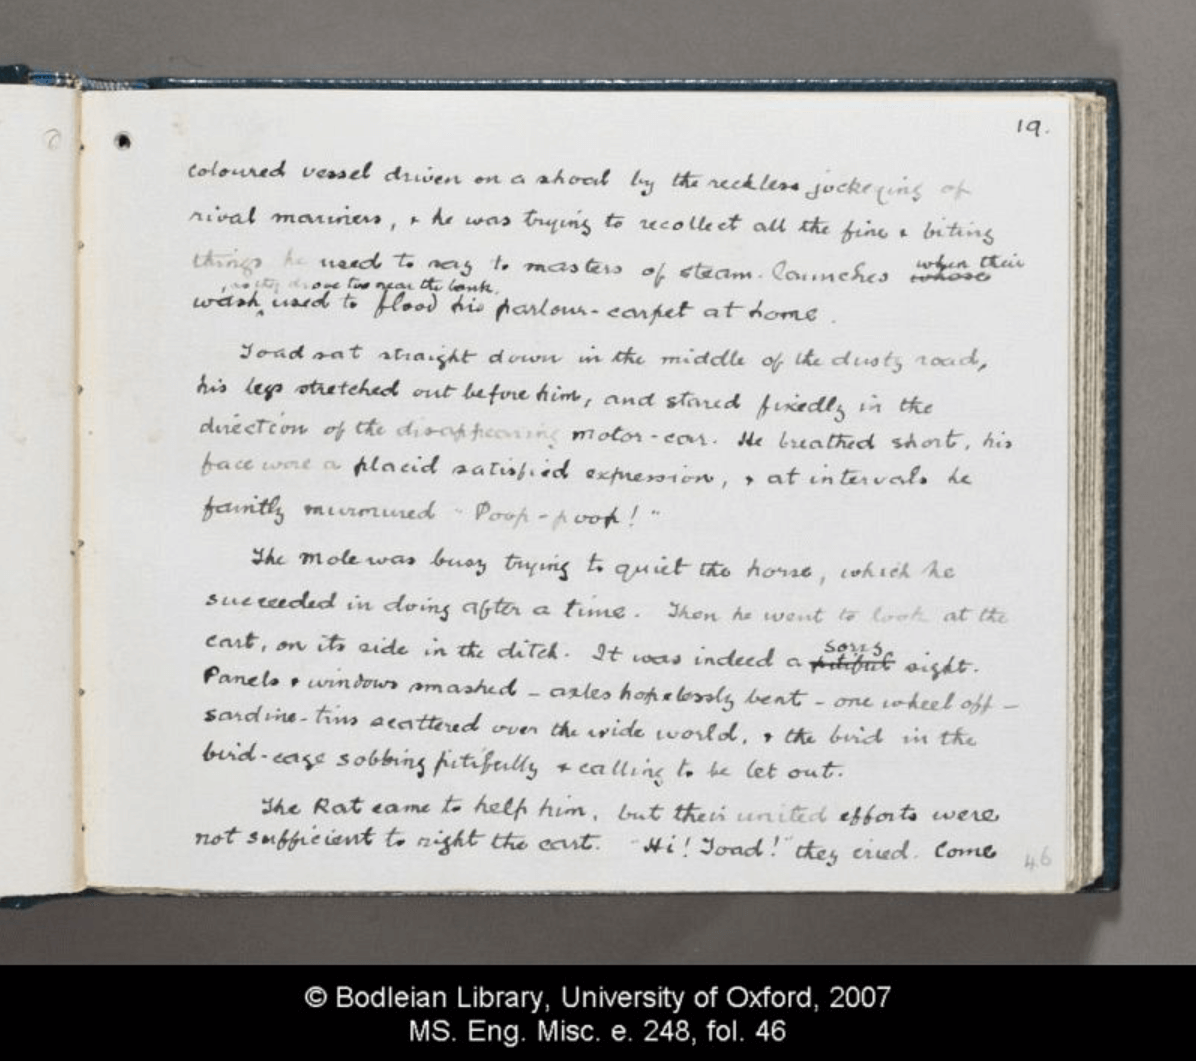 19.
coloured vessel driven on a shoal by the reckless jockeying of
rival mariners, & he was trying to recollect all the fine & biting
things he used to say to masters of steam-launches whose when their
, as they drove too near the bank,
wash used to flood his parlour-carpet at home.
Toad sat straight down in the middle of the dusty road,
his legs stretched out before him, and stared fixedly in the
direction of the disappearing motor-car. He breathed short, his
face wore a placid satisfied expression, & at intervals he
faintly murmured "Poop-poop!"
The Mole was busy trying to quiet the horse, which he
succeeded in doing after a time. Then he went to look at the
cart, on its side in the ditch. It was indeed a pitiful sorry sight.
Panels & windows smashed - axles hopelessly bent - one wheel off -
sardine-tins scattered over the wide world, & the bird in the
bird-cage sobbing pitifully & calling to be let out.
The Rat came to help him, but their united efforts were
not sufficient to right the cart. "Hi! Toad!" they cried. Come
46
© Bodleian Library, University of Oxford, 2007
MS. Eng. Misc. e. 248, fol. 46